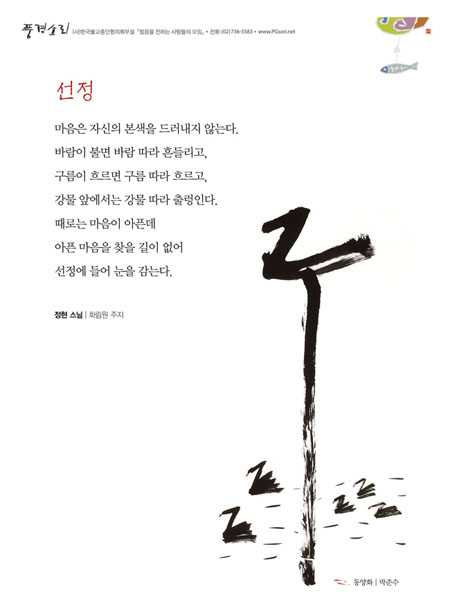 풍경소리 (사)한국불교종단협의회부설 「법음을 전하는 사람들의 모임」 • 전화 (02)736-5583 • www.PGsori.net
선정
마음은 자신의 본색을 드러내지 않는다.
바람이 불면 바람 따라 흔들리고,
구름이 흐르면 구름 따라 흐르고,
강물 앞에서는 강물 따라 출렁인다.
때로는 마음이 아픈데
아픈 마음을 찾을 길이 없어
선정에 들어 눈을 감는다.
정현 스님 | 화림원 주지
동양화 | 박준수